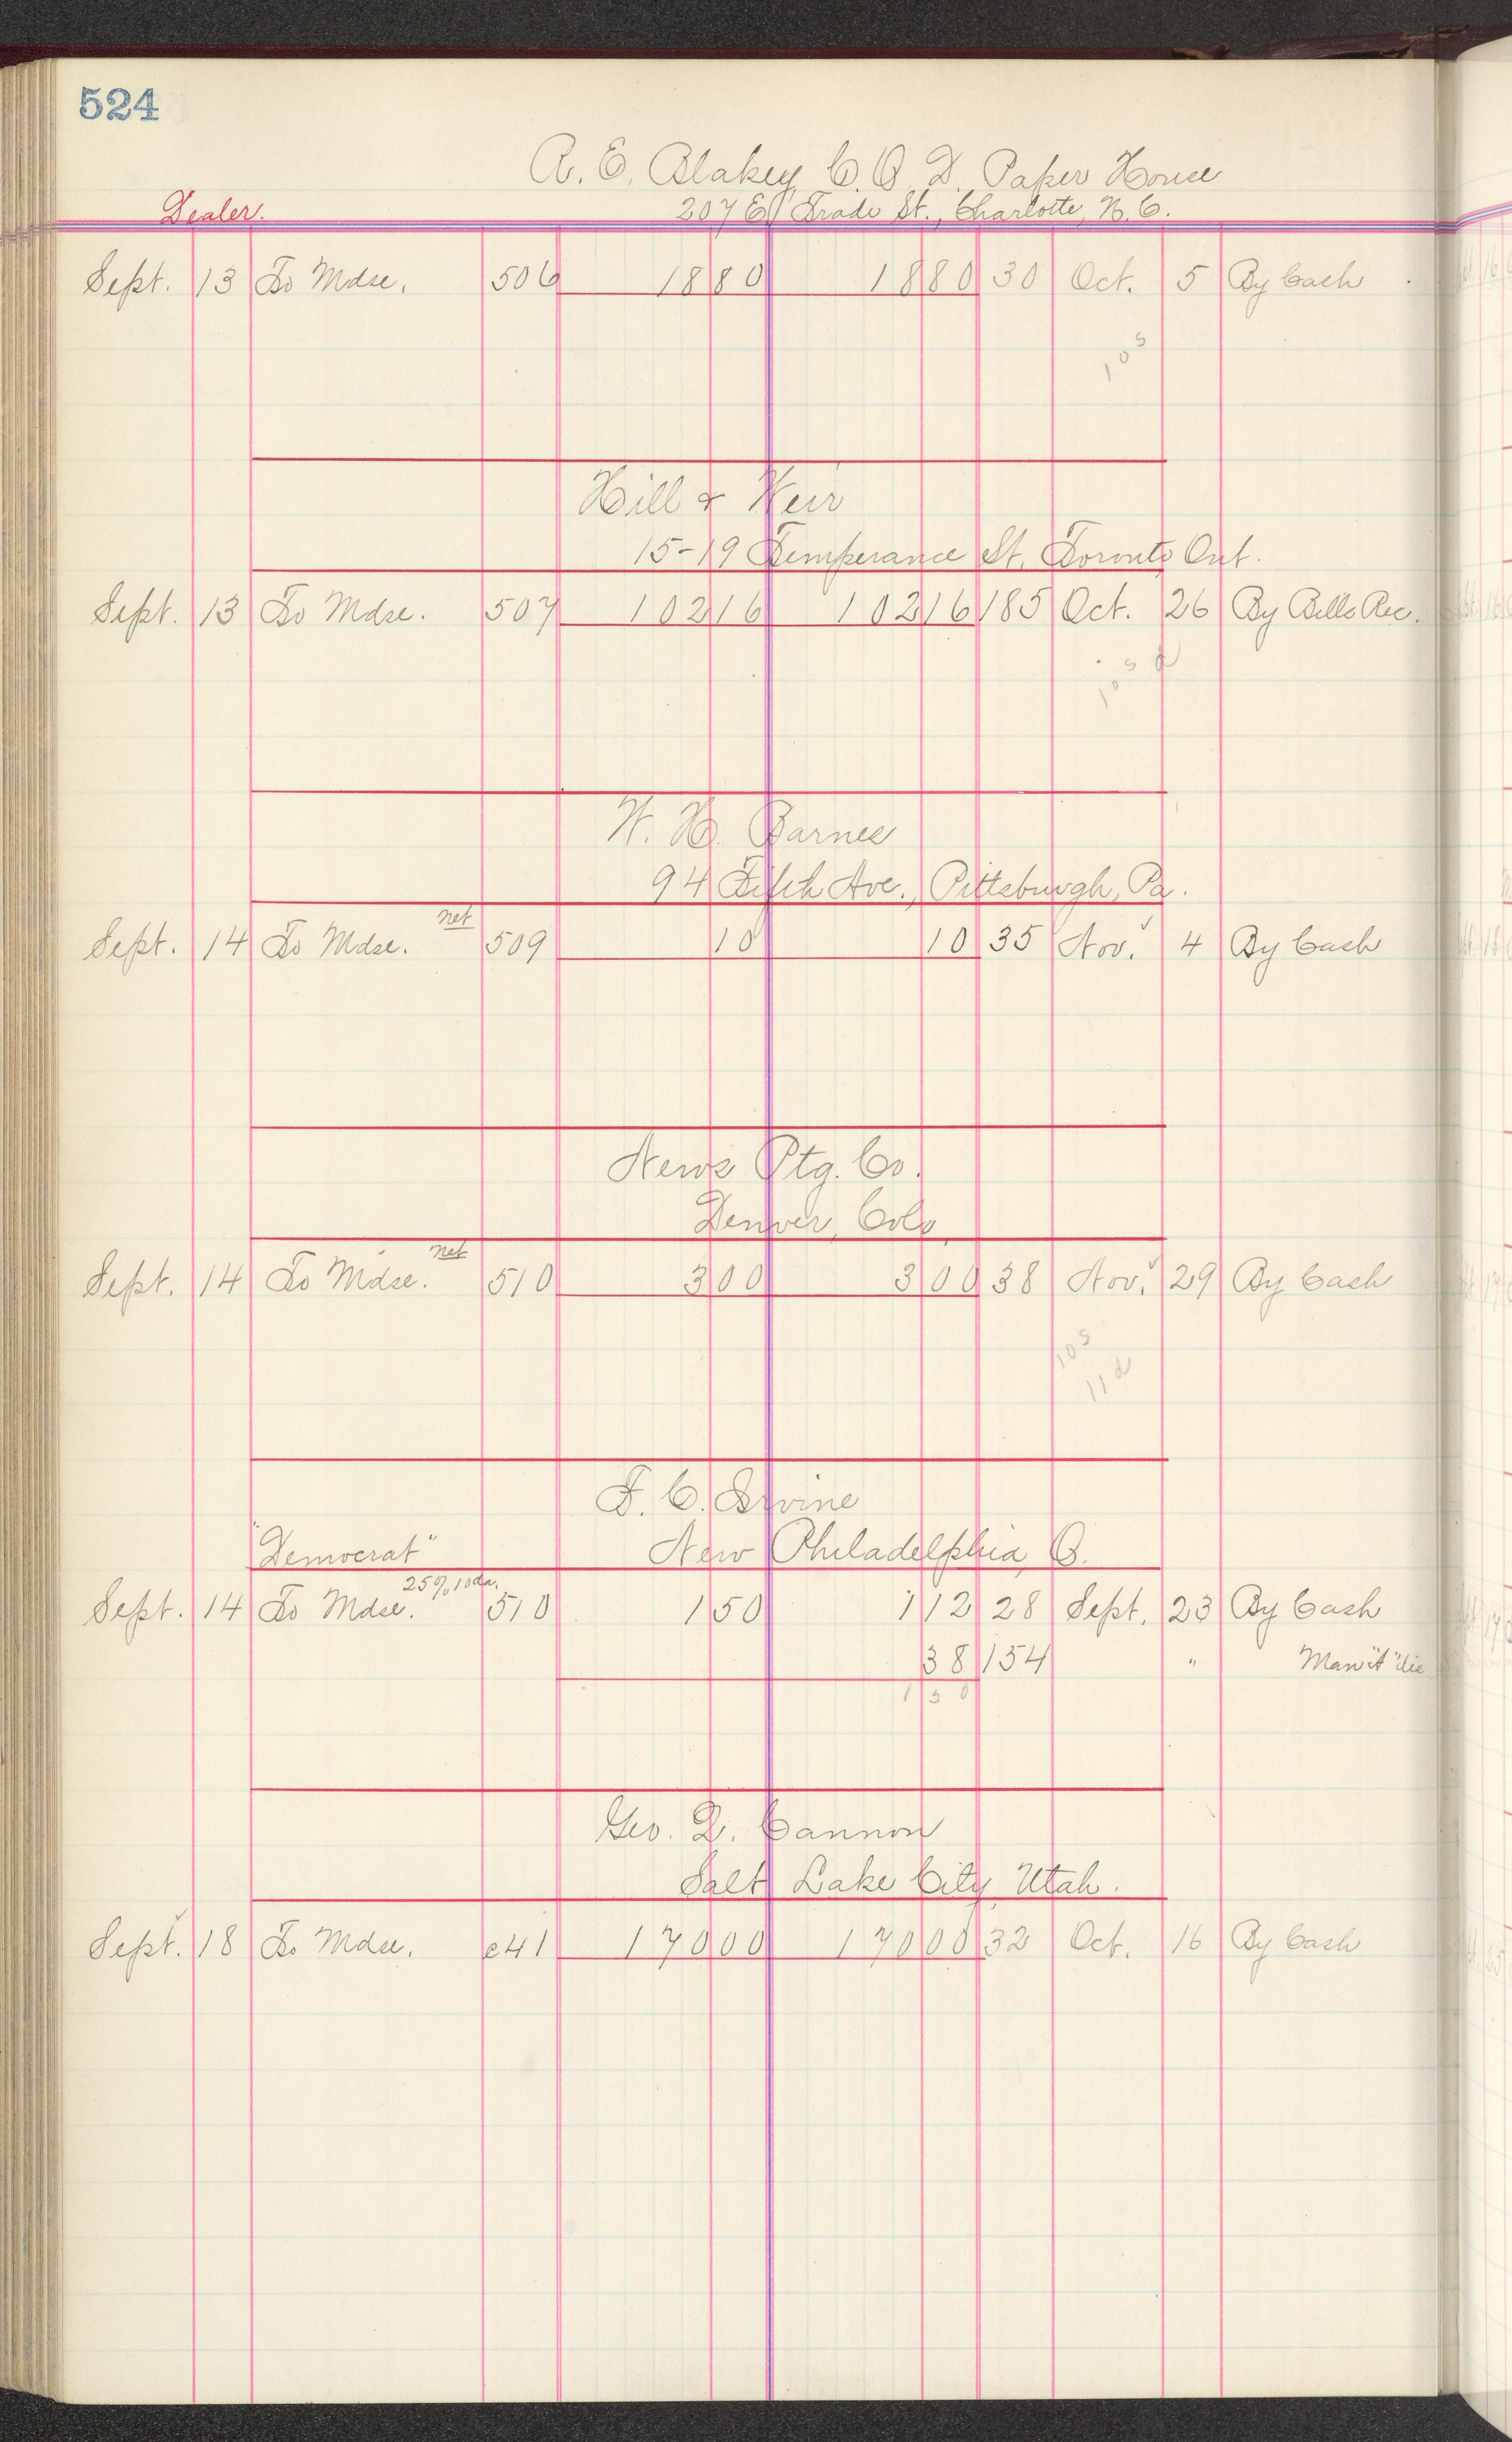 524
A. E. Blakey C. O. D. Paper House
Dealer. 207 E. Trade St., Charlotte, N. C.
Sept. 13 To Mdse. 506 18 80 18 80 30 Oct. 5 By Cash
10 5
Hill & Weir
15-19 Temperance St. Toronto Ont.
Sept. 13 To Mdse. 507 102 16 102 16 185 Oct. 26 By Bills Rec.
10 5 d
W. H. Barnes
94 Fifth Ave., Pittsburgh, Pa.
net
Sept. 14 To Mdse. 509 10 10 35 Nov. 4 By Cash
News Ptg. Co.
Denver, Colo
net
Sept. 14 To Mdse. 510 3 00 3 00 38 Nov. 29 By Cash
10 5
11 d
F. C. Irvine
"Democrat" New Philadelphia O.
25% 10 da.
Sept. 14 To Mdse. 510 1 50 1 12 28 Sept. 23 By Cash
38 154 " Man't "dis
1 50
Geo. Q. Cannon
Salt Lake City, Utah.
Sept. 18 To Mdse. e41 170 00 170 00 32 Oct. 16 By Cash